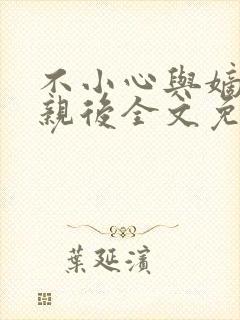 不小心與嫡
親後全文免
葉延濱